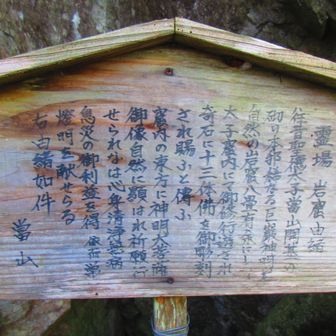 霊場 岩窟由緒
往昔聖徳太子當山開基の
砌り本邦稀なる巨巌神明
自然の岩窟八疊
太子窟内にて御修行遊され
奇石に十三体佛を御彫刻
され賜ふと傳ふ
窟内の東方に神明大菩薩
御像自然に顕はれ祈願行
せられなば心身清浄
息災の御利益を得
燈明を献せらる
右由緒如件
當山